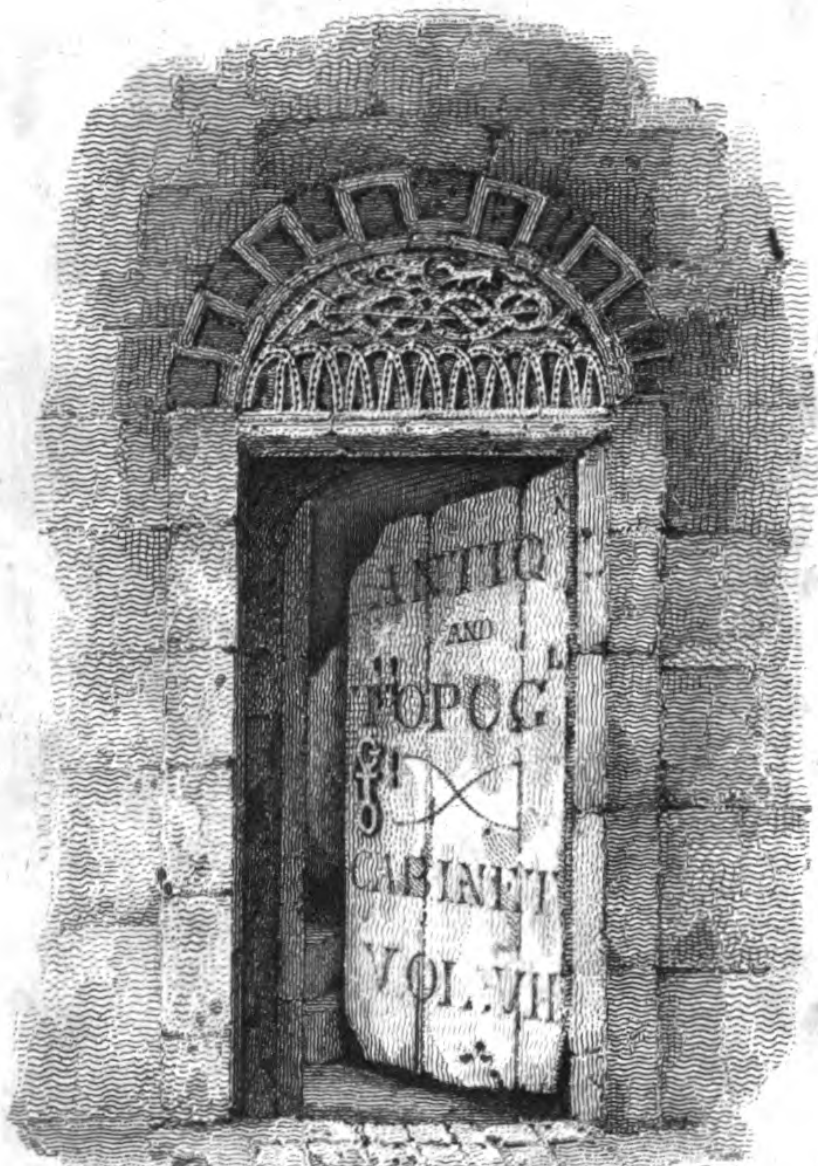 ANTIQ
AND
TOPOG L
CABINET
VOL. VII